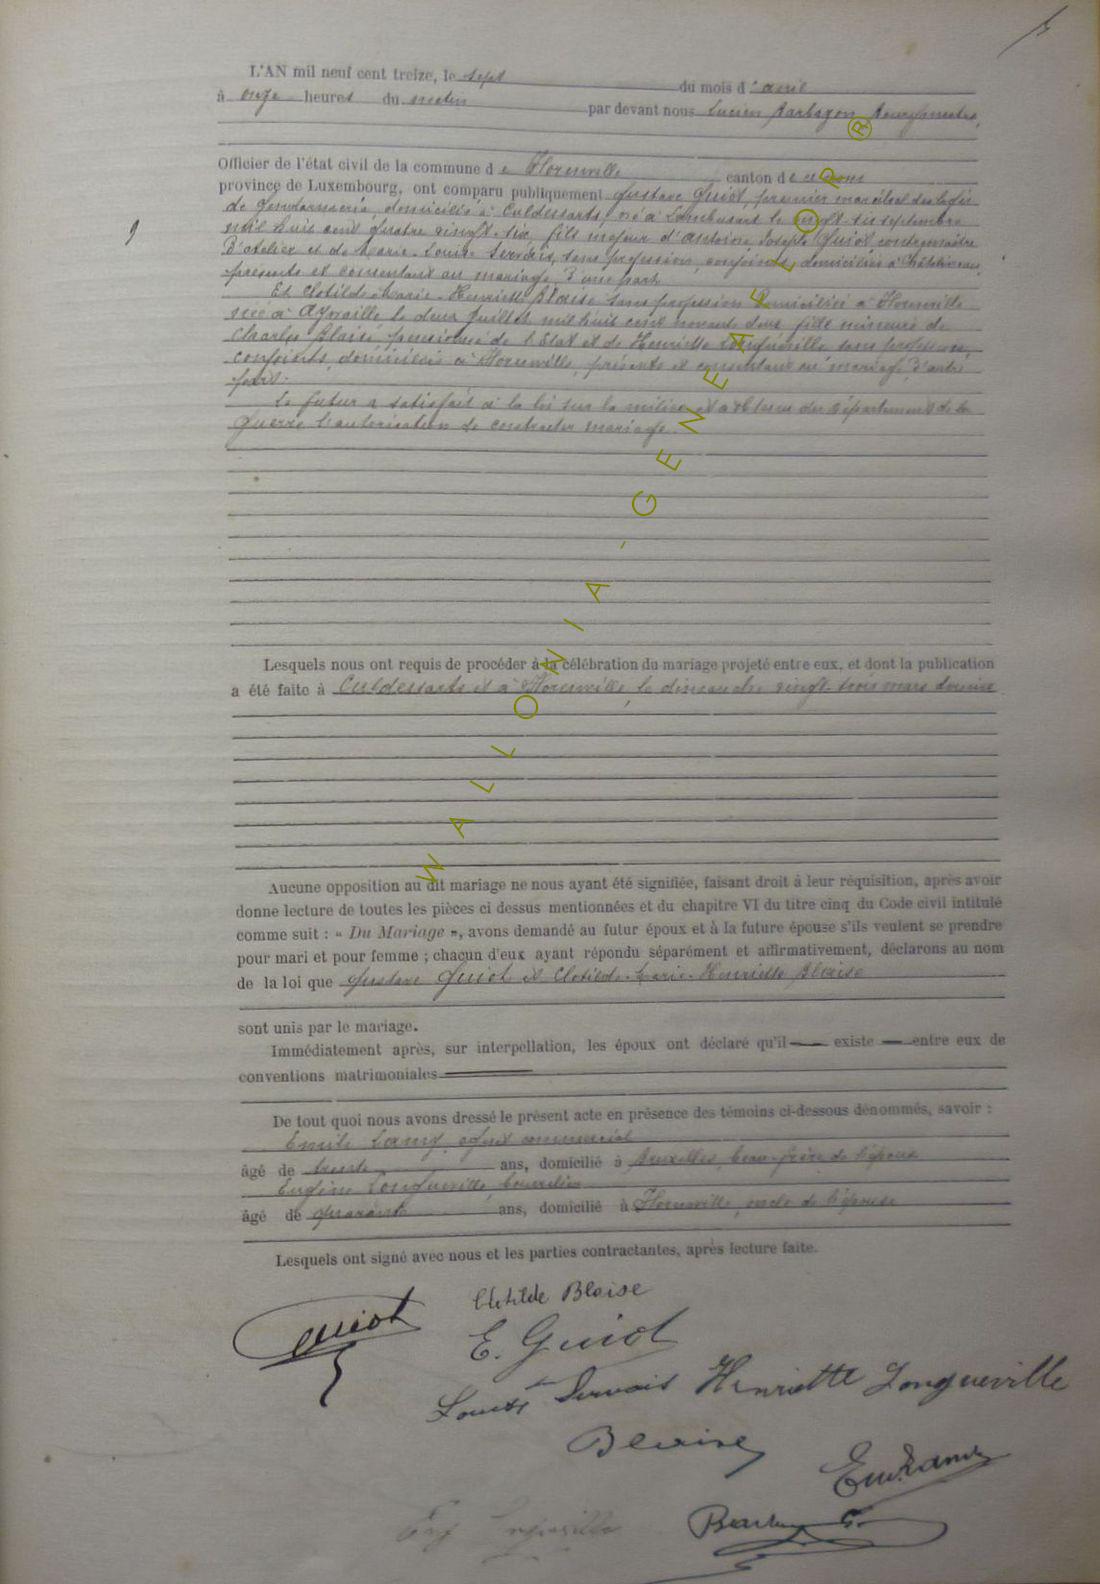 L'AN mil neuf cent treize, le sept du mois d'avril
à onze heures du matin par devant nous Lucien Barbazon Bourgmestre,
Officier de l'état civil de la commune de Florenville canton de
province de Luxembourg, ont comparu publiquement Gustave Guiot, premier maréchal des logis
de Gendarmerie, domicilié à Culdessarts, né à Lambusart le vingt six septembre
mil huit cent quatre vingt-six, fils majeur d'Antoine Joseph Guiot contremaître
d'atelier et de Marie-Louise Servais, sans profession, conjoints domiciliés à Châtelineau,
présents et consentant au mariage, d'une part
Et Clotilde-Marie-Henriette Blaise sans profession domiciliée à Florenville
née à Aywaille le deux juillet mil huit cent nonante deux fille mineure de
Charles Blaise, pensionné de l'Etat et de Henriette Longueville sans profession,
conjoints, domiciliés à Florenville, présents et consentant au mariage, d'autre
part.
Le futur a satisfait à la loi sur la milice et a obtenu du département de la
Guerre l'autorisation de contracter mariage.
9
Lesquels nous ont requis de procéder à la célébration du mariage projeté entre eux, et dont la publication
a été faite à Culdessarts et à Florenville, le dimanche vingt-trois mars dernier
Aucune opposition au dit mariage ne nous ayant été signifiée, faisant droit à leur réquisition, après avoir
donne lecture de toutes les pièces ci dessus mentionnées et du chapitre VI du titre cinq du Code civil intitulé
comme suit : « Du Mariage », avons demandé au futur époux et à la future épouse s'ils veulent se prendre
pour mari et pour femme ; chacun d'eux ayant répondu séparément et affirmativement, déclarons au nom
de la loi que Gustave Guiot et Clotilde-Marie-Henriette Blaise
sont unis par le mariage.
Immédiatement après, sur interpellation, les époux ont déclaré qu'il existe entre eux de
conventions matrimoniales
De tout quoi nous avons dressé le présent acte en présence des témoins ci-dessous dénommés, savoir :
Emile Lamy, agent commercial
âgé de trente ans, domicilié à Bruxelles, beau-frère de l'époux
Eugène Longueville,
âgé de quarante ans, domicilié à Florenville, oncle de l'épouse
Lesquels ont signé avec nous et les parties contractantes, après lecture faite.
Guiot
Clotilde Blaise
E. Guiot
Louise Servais Henriette Longueville
Blaise
Em. Lamy
Eug Longueville
WALLONIA-GENEALOR ®